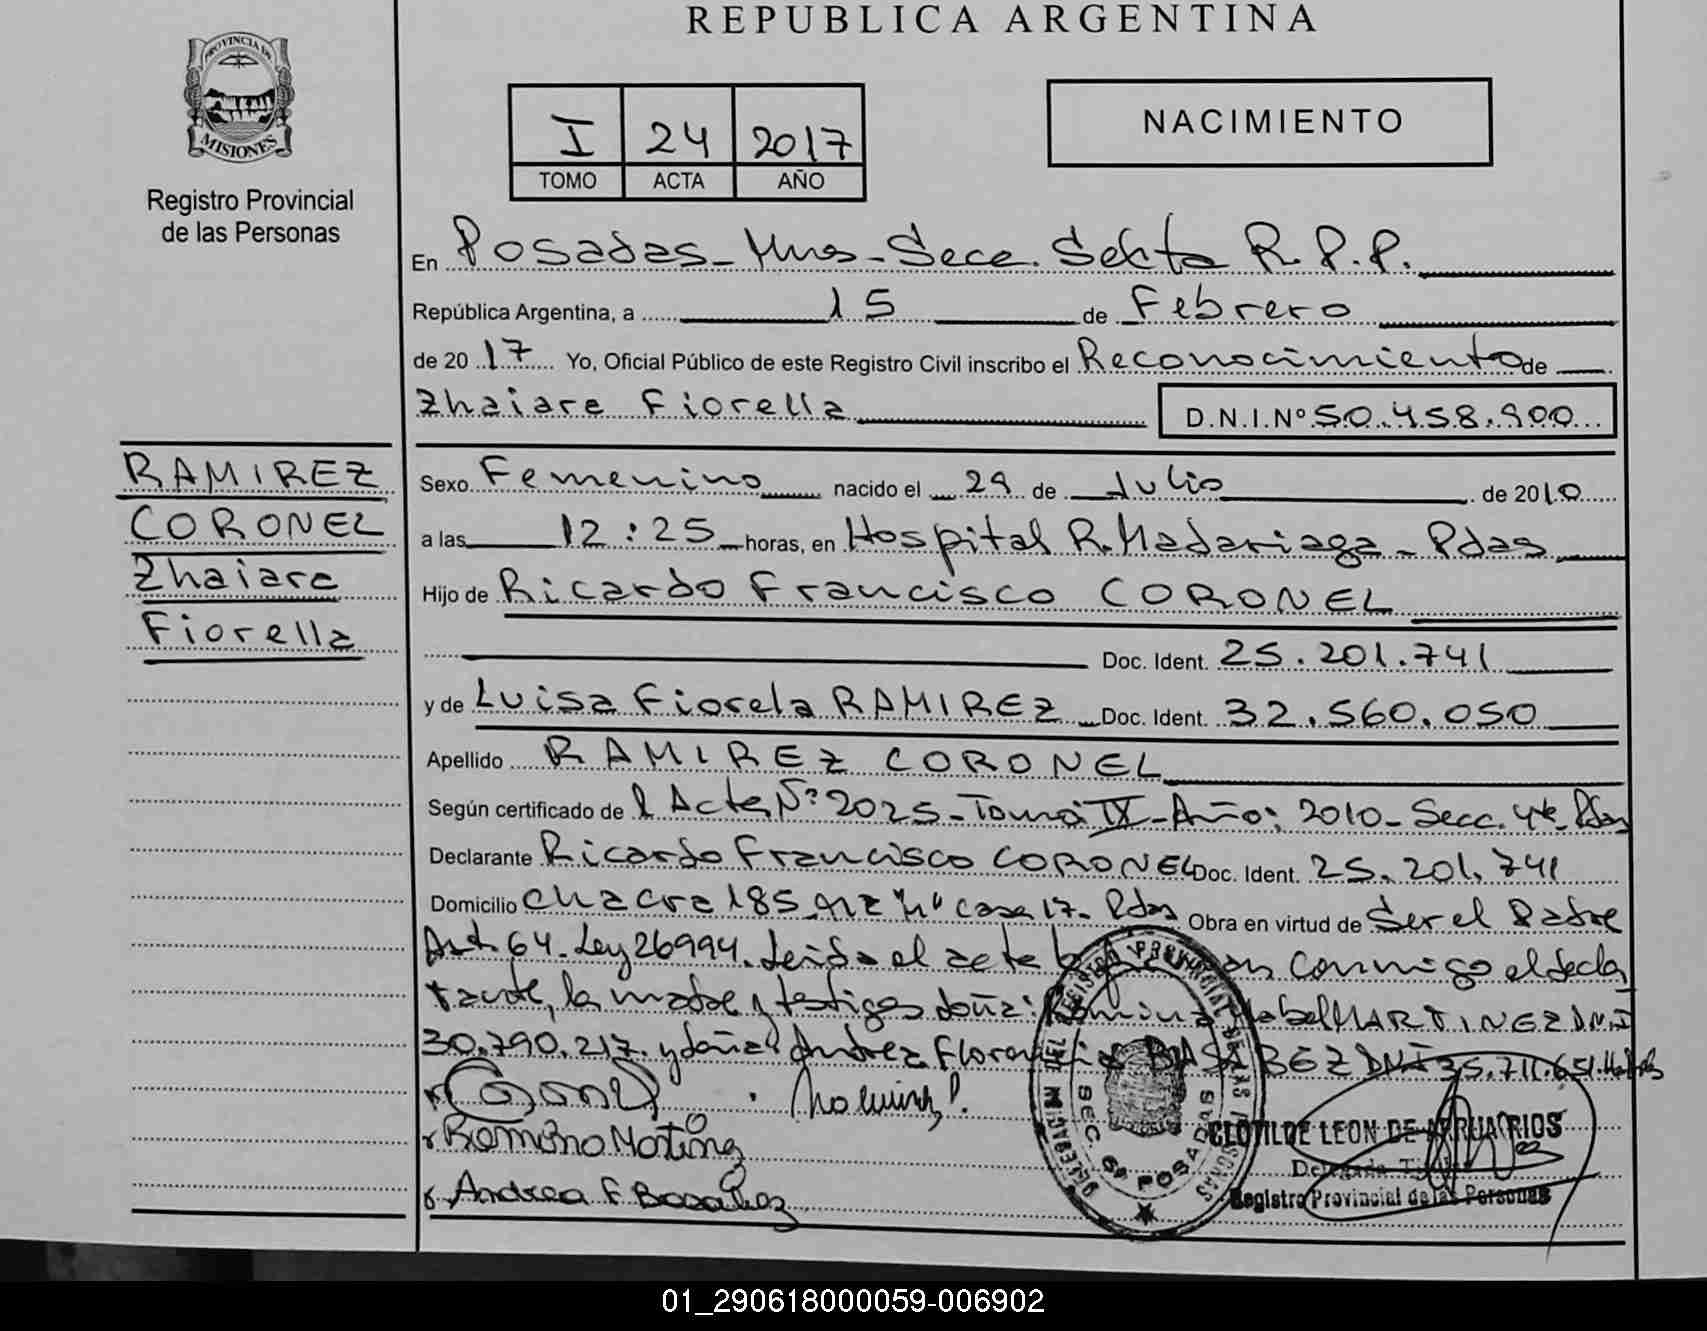 REPUBLICA ARGENTINA
PROVINCIA DE
MISIONES
Registro Provincial
de las Personas
I 24 2017
TOMO ACTA AÑO
NACIMIENTO
En Posadas - Mnes - Secc. Sexta R.P.P.
República Argentina, a 15 de Febrero
de 2017 Yo, Oficial Público de este Registro Civil inscribo el Reconocimiento de
Zhaiara Fiorella D.N.I.Nº 50.458.900
RAMIREZ
CORONEL
Zhaiara
Fiorella
Sexo Femenino nacido el 29 de Julio de 2010
a las 12:25 horas, en Hospital R. Madariaga - Pdas
Hijo de Ricardo Francisco CORONEL
Doc. Ident. 25.201.741
y de Luisa Fiorela RAMIREZ Doc. Ident. 32.560.050
Apellido RAMIREZ CORONEL
Según certificado de l Acta Nº 2025 - Tomo IX - Año: 2010 - Secc. 4ta. Pdas
Declarante Ricardo Francisco CORONEL Doc. Ident. 25.201.741
Domicilio Chacra 185 casa 17 - Pdas Obra en virtud de Ser el Padre
Art. 64. Ley 26994. Leida el acta conmigo el decla
rante, la madre y testigos doña: Romina Mabel MARTINEZ D.N.I
30.790.217 y doña Andrea Florencia BASABEZ DNI 35.711.651
Romina Martinez
Andrea F Basabez
DELEGACION DEL REGISTRO PROVINCIAL DE LAS PERSONAS
SEC. 6ª POSADAS
CLOTILDE LEON DE
Delegada Titular
Registro Provincial de las Personas
01_290618000059-006902